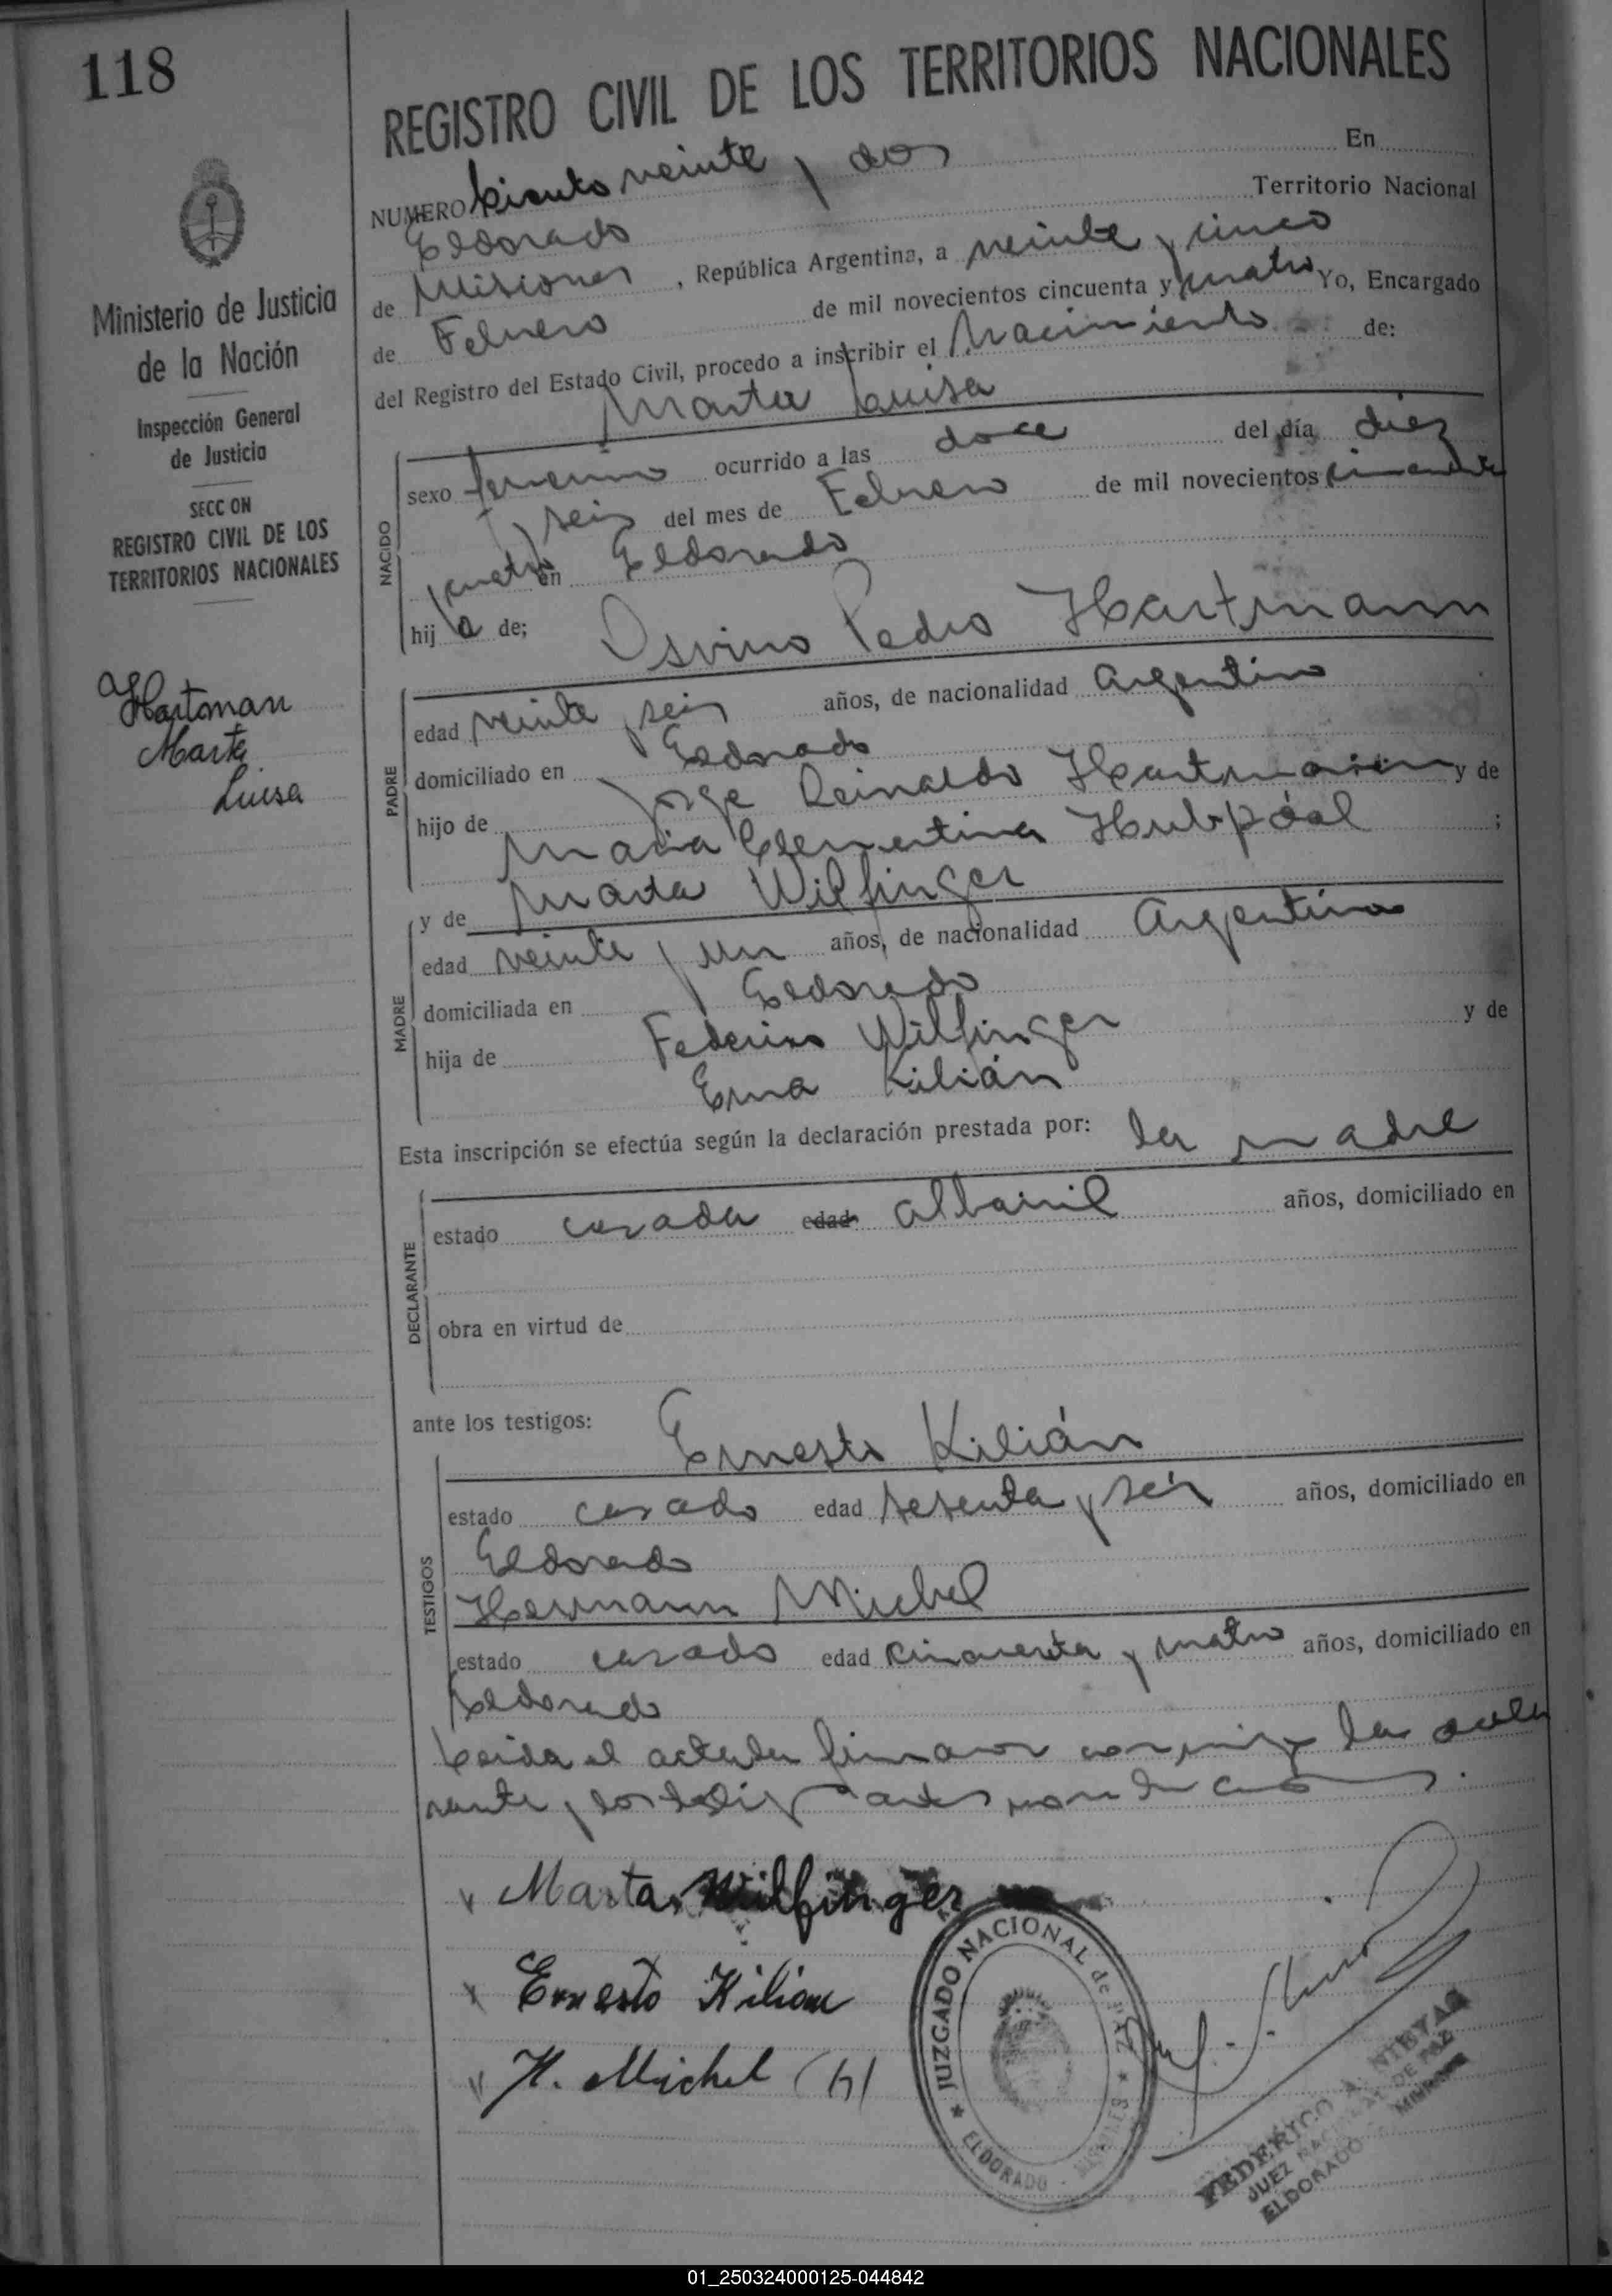 118
Ministerio de Justicia
de la Nación
Inspección General
de Justicia
SECC ON
REGISTRO CIVIL DE LOS
TERRITORIOS NACIONALES
Hartman
Marta
Luisa
REGISTRO CIVIL DE LOS TERRITORIOS NACIONALES
NUMERO Ciento veinte y dos En
Eldorado Territorio Nacional
de Misiones, República Argentina, a veinte y cinco
de Febrero de mil novecientos cincuenta y cuatro Yo, Encargado
del Registro del Estado Civil, procedo a inscribir el Nacimiento de:
Marta Luisa
NACIDO
sexo femenino ocurrido a las doce del día diez
y seis del mes de Febrero de mil novecientos cincuenta
y cuatro en Eldorado
hij a de; Osvino Pedro Hartmann
PADRE
edad veinte y seis años, de nacionalidad Argentino
domiciliado en Eldorado
hijo de Jorge Reinaldo Hartmann y de
Maria Clementina Hubpóal ;
y de Marta Wilfinger
MADRE
edad veinte y un años, de nacionalidad Argentina
domiciliada en Eldorado
hija de Federico Wilfinger y de
Erna Kilián
Esta inscripción se efectúa según la declaración prestada por: la madre
DECLARANTE
estado casada edad albañil años, domiciliado en
obra en virtud de
ante los testigos: Ernesto Kilián
TESTIGOS
estado casado edad sesenta y seis años, domiciliado en
Eldorado
Hermann Michel
estado casado edad cincuenta y cuatro años, domiciliado en
Eldorado
Leida el acta la firmaron conmigo la decla
rante y los testigos
Marta Wilfinger
Ernesto Kilian
H. Michel (h)
JUZGADO NACIONAL de PAZ
ELDORADO - MISIONES
FEDERICO A. NIEVAS
JUEZ NACIONAL DE PAZ
ELDORADO - MISIONES
01_250324000125-044842